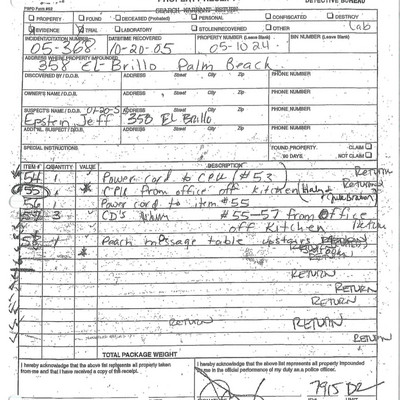 PROPERTY RECEIPT
SEARCH WARRANT RETURN
DETECTIVE BUREAU
PROPERTY FOUND DECEASED (Probated) PERSONAL CONFISCATED DESTROY
EVIDENCE TRIAL LABORATORY STOLEN/RECOVERED OTHER Lab
INCIDENT/CITATION NUMBER DATE/TIME RECOVERED PROPERTY NUMBER (Leave Blank) BIN NUMBER (Leave Blank)
05-368 10-20-05 05-1024
ADDRESS WHERE PROPERTY IMPOUNDED
358 EL-Brillo Palm Beach
DISCOVERED BY / D.O.B. ADDRESS Street City Zip PHONE NUMBER
OWNER'S NAME / D.O.B. ADDRESS Street City Zip PHONE NUMBER
SUSPECT'S NAME / D.O.B. ADDRESS Street City Zip PHONE NUMBER
Epstein, Jeff 358 EL Brillo
ADD'NL SUSPECT / D.O.B. ADDRESS Street City Zip PHONE NUMBER
SPECIAL INSTRUCTIONS FOUND PROPERTY CLAIM
90 DAYS NOT CLAIM
ITEM # QUANTITY VALUE DESCRIPTION
54 1 Power cord to CPU #53 RETURN
55 1 CPU from office off kitchen RETURN
56 1 Power cord to item #55
57 3 CD's #55-57 from Office
off Kitchen Return
58 1 Peach message table upstairs RETURN
RETURN
RETURN
RETURN
RETURN
RETURN
RETURN RETURN
RETURN
TOTAL PACKAGE WEIGHT
I hereby acknowledge that the above list represents all property taken from me and that I have received a copy of this receipt.
I hereby acknowledge that the above list represents all property impounded by me in the official performance of my duty as a police officer.
7915 DB